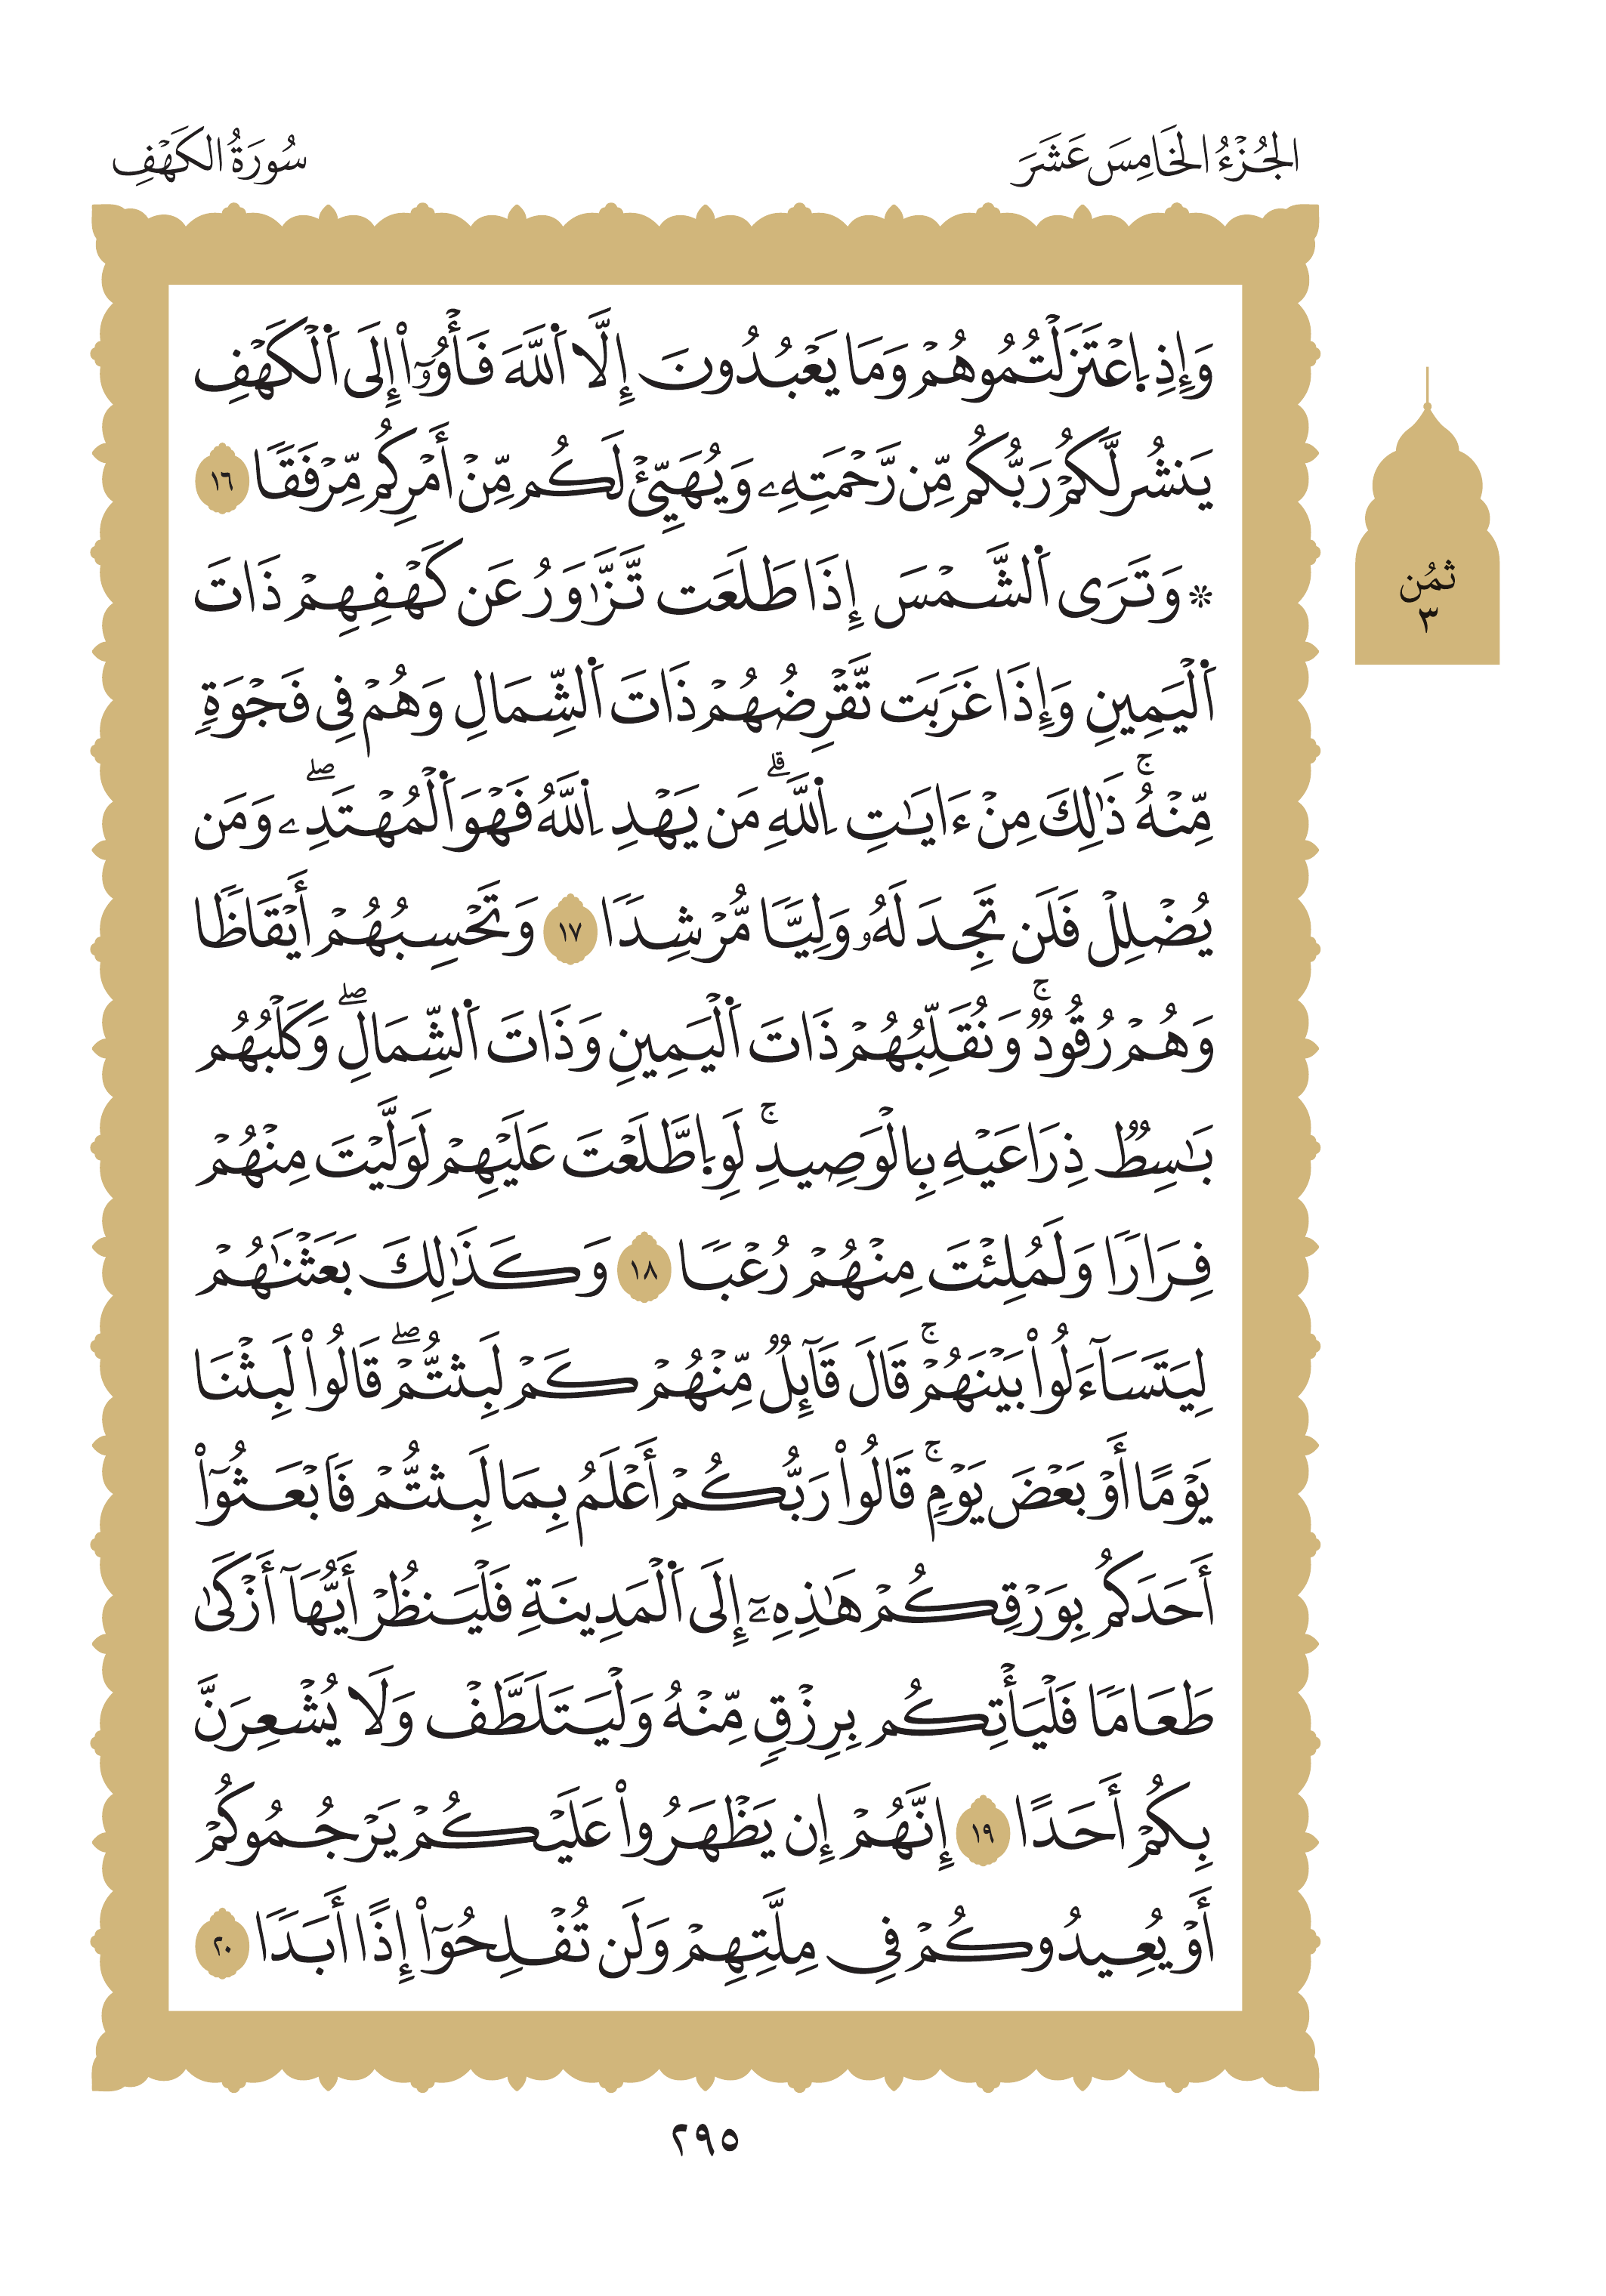 الجُزْءُ الخَامِسَ عَشَرَ
سُورَةُ الكَهْفِ
وَإِذِ اِعْتَزَلْتُمُوهُمْ وَمَا يَعْبُدُونَ إِلَّا اَللَّهَ فَأْوُۥٓاْ إِلَى اَلْكَهْفِ
يَنشُر لَّكُمْ رَبُّكُم مِّن رَّحْمَتِهِۦ وَيُهَيِّئْ لَكُم مِّنْ أَمْرِكُم مِّرْفَقًا ١٦
۞ وَتَرَى اَلشَّمْسَ إِذَا طَلَعَت تَّزَّٰوَرُ عَن كَهْفِهِمْ ذَاتَ
اَلْيَمِينِ وَإِذَا غَرَبَت تَّقْرِضُهُمْ ذَاتَ اَلشِّمَالِ وَهُمْ فِي فَجْوَةٍ
مِّنْهُۚ ذَٰلِكَ مِنْ ءَايَٰتِ اِللَّهِۗ مَن يَهْدِ اِللَّهُ فَهْوَ اَلْمُهْتَدِۦۖ وَمَن
يُضْلِلْ فَلَن تَجِدَ لَهُۥ وَلِيًّا مُّرْشِدًا ١٧ وَتَحْسِبُهُمْ أَيْقَاظًا
وَهُمْ رُقُودٌۚ وَنُقَلِّبُهُمْ ذَاتَ اَلْيَمِينِ وَذَاتَ اَلشِّمَالِۖ وَكَلْبُهُم
بَٰسِطٌ ذِرَاعَيْهِ بِالْوَصِيدِۚ لَوِ اِطَّلَعْتَ عَلَيْهِمْ لَوَلَّيْتَ مِنْهُمْ
فِرَارًا وَلَمُلِئْتَ مِنْهُمْ رُعْبًا ١٨ وَكَذَٰلِكَ بَعَثْنَٰهُمْ
لِيَتَسَآءَلُواْ بَيْنَهُمْۚ قَالَ قَآئِلٌ مِّنْهُمْ كَمْ لَبِثتُّمْۖ قَالُواْ لَبِثْنَا
يَوْمًا أَوْ بَعْضَ يَوْمٍۚ قَالُواْ رَبُّكُمْ أَعْلَمُ بِمَا لَبِثتُّمْ فَابْعَثُوٓاْ
أَحَدَكُم بِوَرْقِكُمْ هَٰذِهِۦٓ إِلَى اَلْمَدِينَةِ فَلْيَنظُرْ أَيُّهَآ أَزْكَىٰ
طَعَامًا فَلْيَأْتِكُم بِرِزْقٍ مِّنْهُ وَلْيَتَلَطَّفْ وَلَا يُشْعِرَنَّ
بِكُمْ أَحَدًا ١٩ إِنَّهُمْ إِن يَظْهَرُواْ عَلَيْكُمْ يَرْجُمُوكُمْ
أَوْ يُعِيدُوكُمْ فِي مِلَّتِهِمْ وَلَن تُفْلِحُوٓاْ إِذًا أَبَدًا ٢٠
ثمُن
٣
٢٩٥